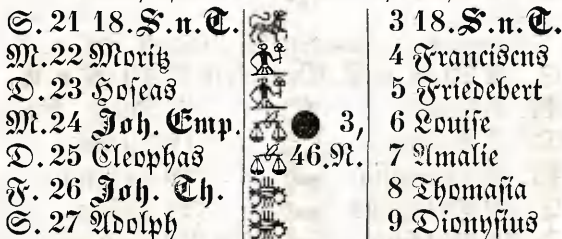 S. 21 18. S. n. T. 3 18. S. n. T.
M. 22 Moritz 4 Franciscus
D. 23 Hoseas 5 Friedebert
M. 24 Joh. Emp. 3, 6 Louise
D. 25 Cleophas 46. N. 7 Amalie
F. 26 Joh. Th. 8 Thomasia
S. 27 Adolph 9 Dionysius